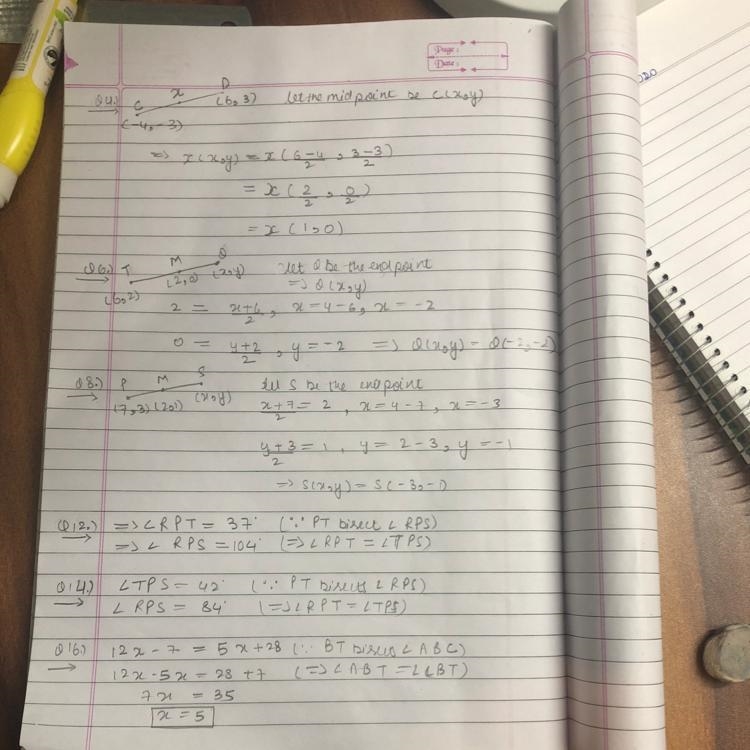 Page :
Date :
Q4.) C x D
(-4, -3) (6, 3) Let the midpoint be C(x,y)
=> x(x,y) = x(6-4/2, 3-3/2)
= x(2/2, 0/2)
= x(1,0)
Q6.) T M Q
(6,2) (2,0) (x,y) Let Q be the endpoint
=> Q(x,y)
2 = x+6/2, x = 4-6, x = -2
0 = y+2/2, y = -2 => Q(x,y) = Q(-2,-2)
Q8.) P M S
(7,3) (2,1) (x,y) Let S be the endpoint
x+7/2 = 2, x = 4-7, x = -3
y+3/2 = 1, y = 2-3, y = -1
=> S(x,y) = S(-3,-1)
Q12.) => ∠RPT = 37° (∵ PT bisect ∠RPS)
=> ∠RPS = 104° (=> ∠RPT = ∠TPS)
Q14.) ∠TPS = 42° (∵ PT bisects ∠RPS)
∠RPS = 84° (=> ∠RPT = ∠TPS)
Q16.) 12x - 7 = 5x + 28 (∵ BT bisects ∠ABC)
12x - 5x = 28 + 7 (=> ∠ABT = ∠CBT)
7x = 35
x = 5